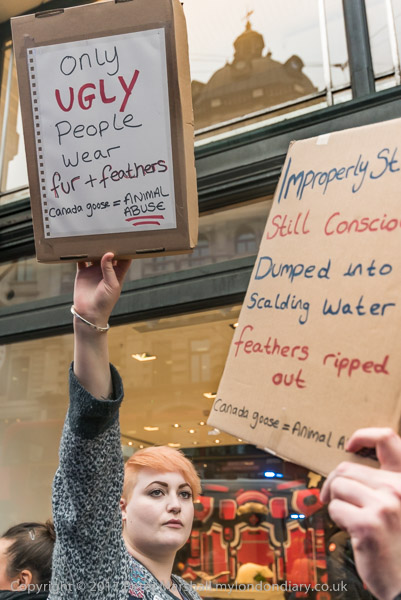 only
UGLY
People
wear
fur + feathers
Canada goose = ANIMAL
ABUSE
Improperly St
Still Conscio
Dumped into
scalding water
feathers ripped
out
Canada goose = Animal A
Copyright © 201 Marshall mylondondiary.co.uk